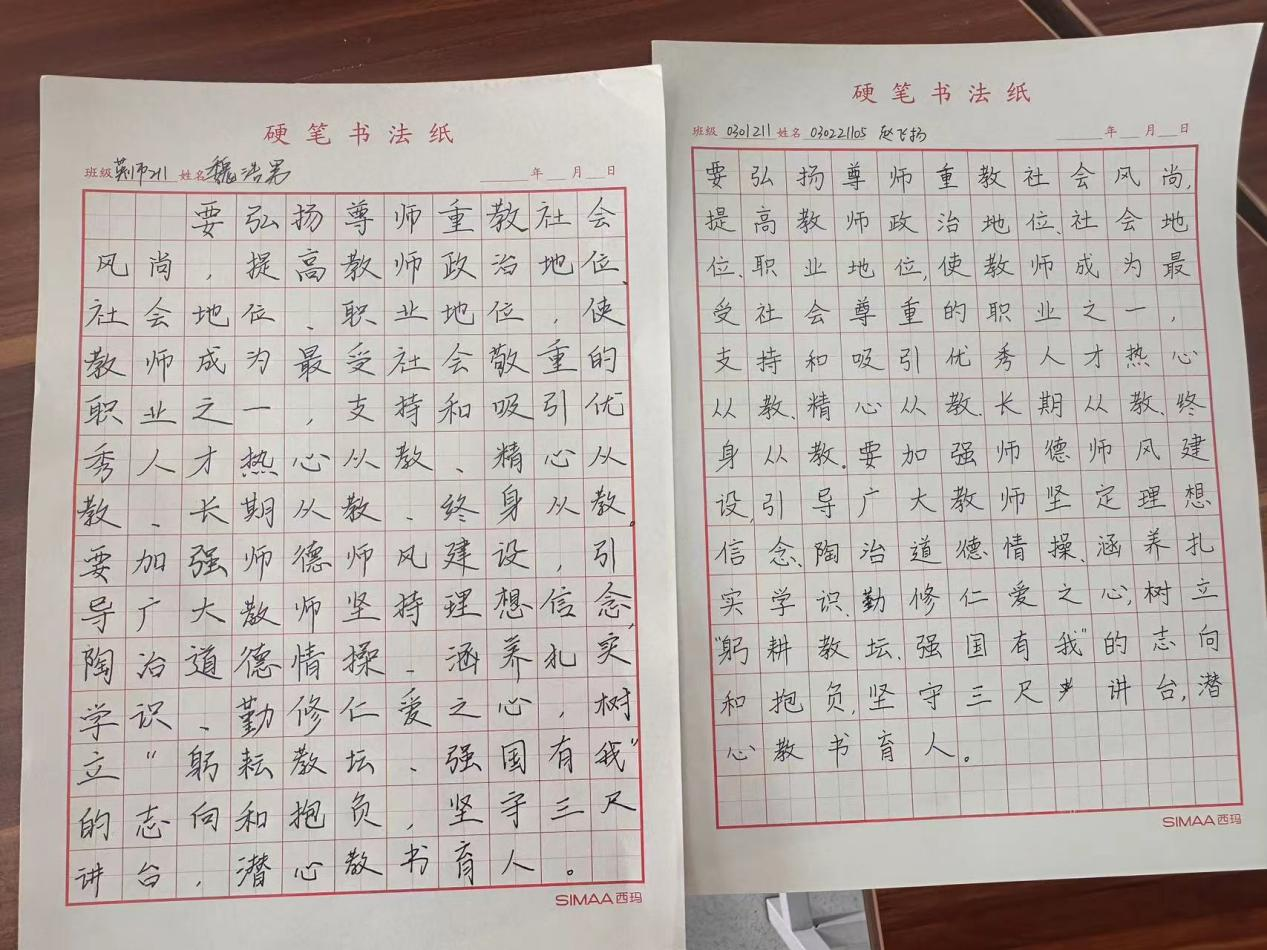 硬笔书法纸
班级 荆师211 姓名 魏浩男 年 月 日
要弘扬尊师重教社会
风尚，提高教师政治地位、
社会地位、职业地位，使
教师成为最受社会敬重的
职业之一，支持和吸引优
秀人才热心从教、精心从
教、长期从教、终身从教。
要加强师德师风建设，引
导广大教师坚持理想信念，
陶冶道德情操、涵养扎实
学识、勤修仁爱之心，树
立“躬耘教坛、强国有我”
的志向和抱负，坚守三尺
讲台，潜心教书育人。
SIMAA西玛
硬笔书法纸
班级 0301211 姓名 030221105 赵飞扬 年 月 日
要弘扬尊师重教社会风尚，
提高教师政治地位、社会地
位、职业地位，使教师成为最
受社会尊重的职业之一，
支持和吸引优秀人才热心
从教、精心从教、长期从教、终
身从教。要加强师德师风建
设，引导广大教师坚定理想
信念、陶冶道德情操、涵养扎
实学识、勤修仁爱之心，树立
“躬耕教坛、强国有我”的志向
和抱负，坚守三尺讲台，潜
心教书育人。
SIMAA西玛